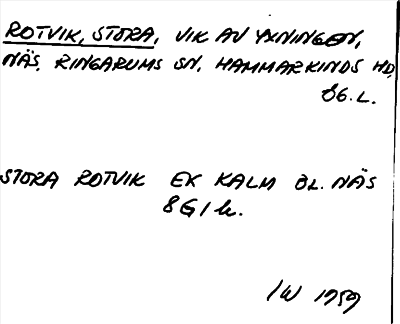 ROTVIK, STORA, VIK AV YXNINGEN,
NÄS, RINGARUMS SN. HAMMARKINDS HD,
ÖG. L.
STORA ROTVIK EK KALM BL. NÄS
8G1h.
IW 1959